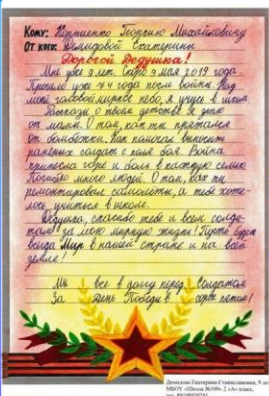 Кому: Корниенко Георгию Михайловичу
От кого: Демидовой Екатерины
Дорогой Дедушка!
Мне уже 9 лет. Скоро 9 мая 2019 года.
Прошло уже 74 года после войны. Над
моей головой мирное небо, я учусь в школе.
Рассказы о твоём детстве я знаю
от мамы. О том, как ты прятался
от бомбёжки. Как помогал выносить
раненых солдат с поля боя. Война
принесла горе и боль в каждую семью.
Погибло много людей. О том, как ты
ремонтировал самолёты, а тебе хоте-
лось учиться в школе.
Дедушка, спасибо тебе и всем солда-
там за мою мирную жизнь! Пусть будет
всегда Мир в нашей стране и на всей
земле!
Мы все в долгу перед Солдатом
За День Победы в сорок пятом!
Демидова Екатерина Станиславовна, 9 лет
МБОУ «Школа №109» 2 «А» класс,